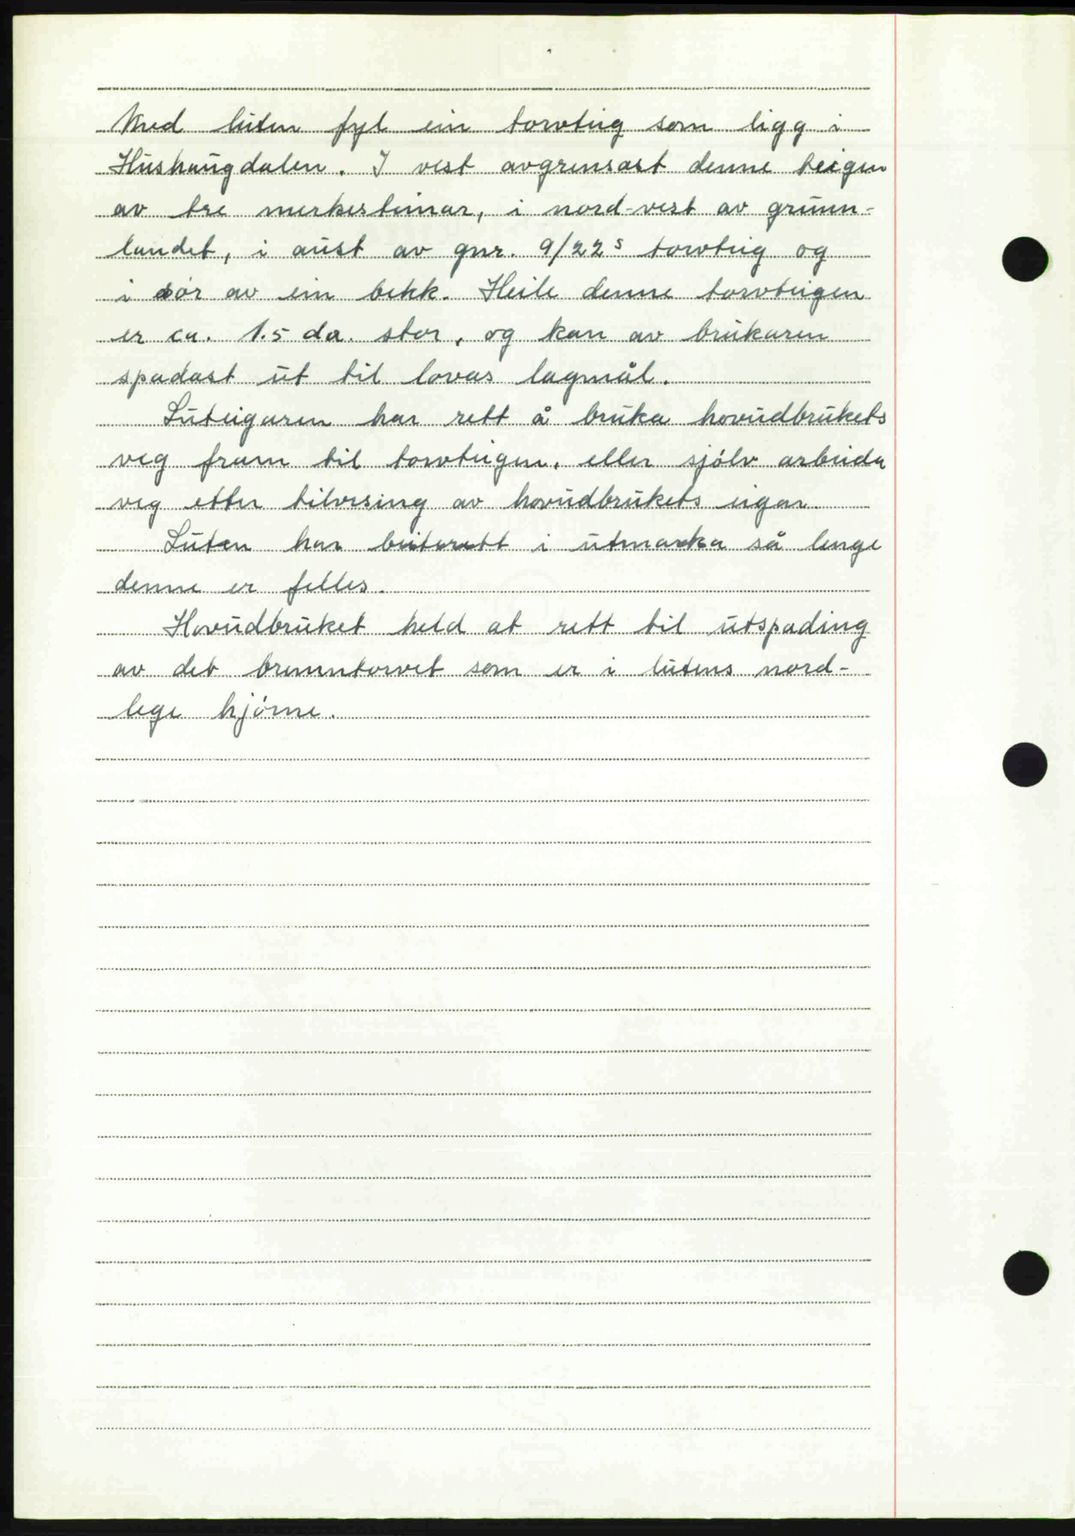 Med luten fyl ein torvteig som ligg i
Hushaugdalen. I vest avgrensast denne teigen
av tre merkesteinar, i nord-vest av grunn-
landet, i aust av gnr. 9/22s torvteig og
i sör av ein bekk. Heile denne torvteigen
er ca. 1.5 da. stor, og kan av brukaren
spadast ut til lovas lagmål.
Luteigaren har rett å bruka hovudbrukets
veg fram til torvteigen, eller sjölv arbeida
veg etter tilvising av hovudbrukets eigar.
Luten har beiterett i utmarka så lenge
denne er felles.
Hovudbruket held at rett til utspading
av det brenntorvet som er i lutens nord-
lege hjörne.